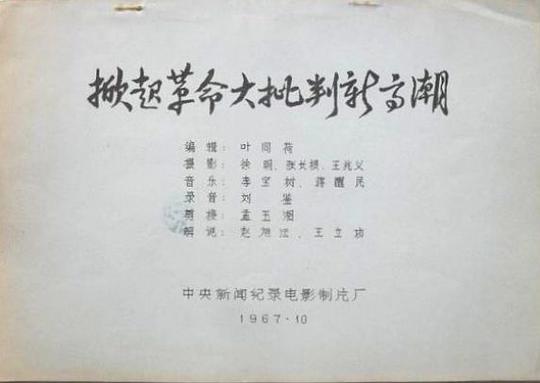 掀起革命大批判新高潮
编辑：叶同荷
摄影：徐明、张长根、王兆义
音乐：李宝树、蒋醒民
录音：刘鉴
剪接：孟玉湘
解说：赵旭 、王立功
中央新闻纪录电影制片厂
1967·10